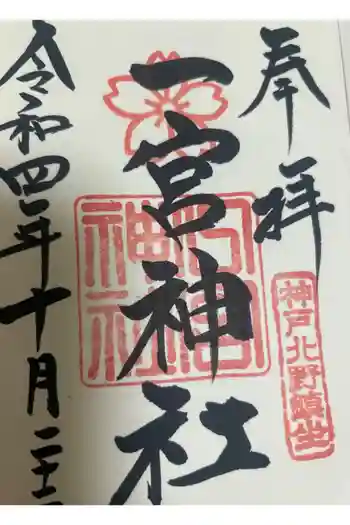 奉拝
神戸北野鎮坐
一宮神社
一宮神社
令和四年十月二十